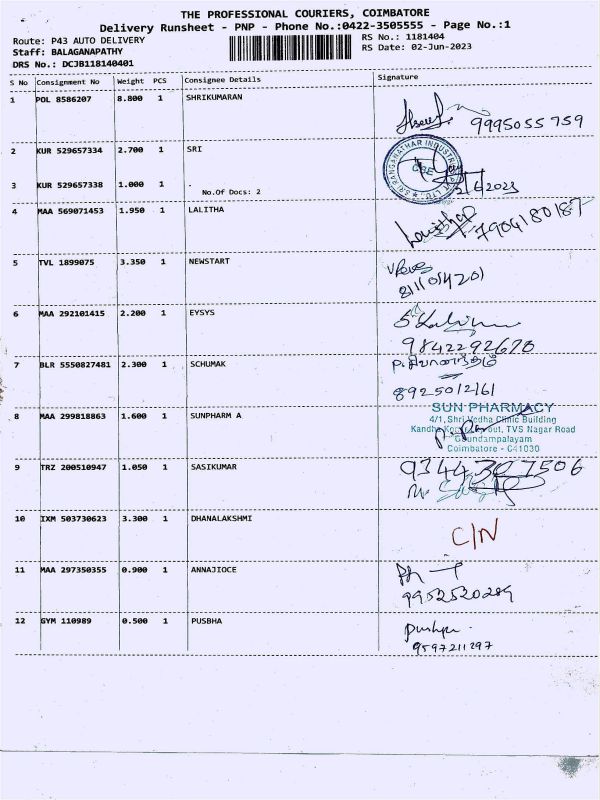 THE PROFESSIONAL COURIERS, COIMBATORE
Delivery Runsheet - PNP - Phone No.:0422-3505555 - Page No.:1
Route: P43 AUTO DELIVERY
RS No.: 1181404
Staff: BALAGANAPATHY
RS Date: 02-Jun-2023
DRS No.: DCJB118140401
S No Consignment No Weight PCS Consignee Details Signature
1 POL 8586207 8.800 1 SHRIKUMARAN
9995055759
2 KUR 529657334 2.700 1 SRI
SRI RANGANATHAR INDUSTRIES
CBE
3 KUR 529657338 1.000 1 .
No.Of Docs: 2
4 MAA 569071453 1.950 1 LALITHA
7904180187
5 TVL 1899075 3.350 1 NEWSTART
6 MAA 292101415 2.200 1 EYSYS
9842292670
7 BLR 5550827481 2.300 1 SCHUMAK
8925012161
8 MAA 299818863 1.600 1 SUNPHARM A
SUN PHARMACY
4/1, Shri Vedha Clinic Building
TVS Nagar Road
Goundampalayam
Coimbatore - 641030
9 TRZ 200510947 1.050 1 SASIKUMAR
9344307506
10 IXM 503730623 3.300 1 DHANALAKSHMI
C/N
11 MAA 297350355 0.900 1 ANNAJIOCE
9952520289
12 GYM 110989 0.500 1 PUSBHA
9597211297